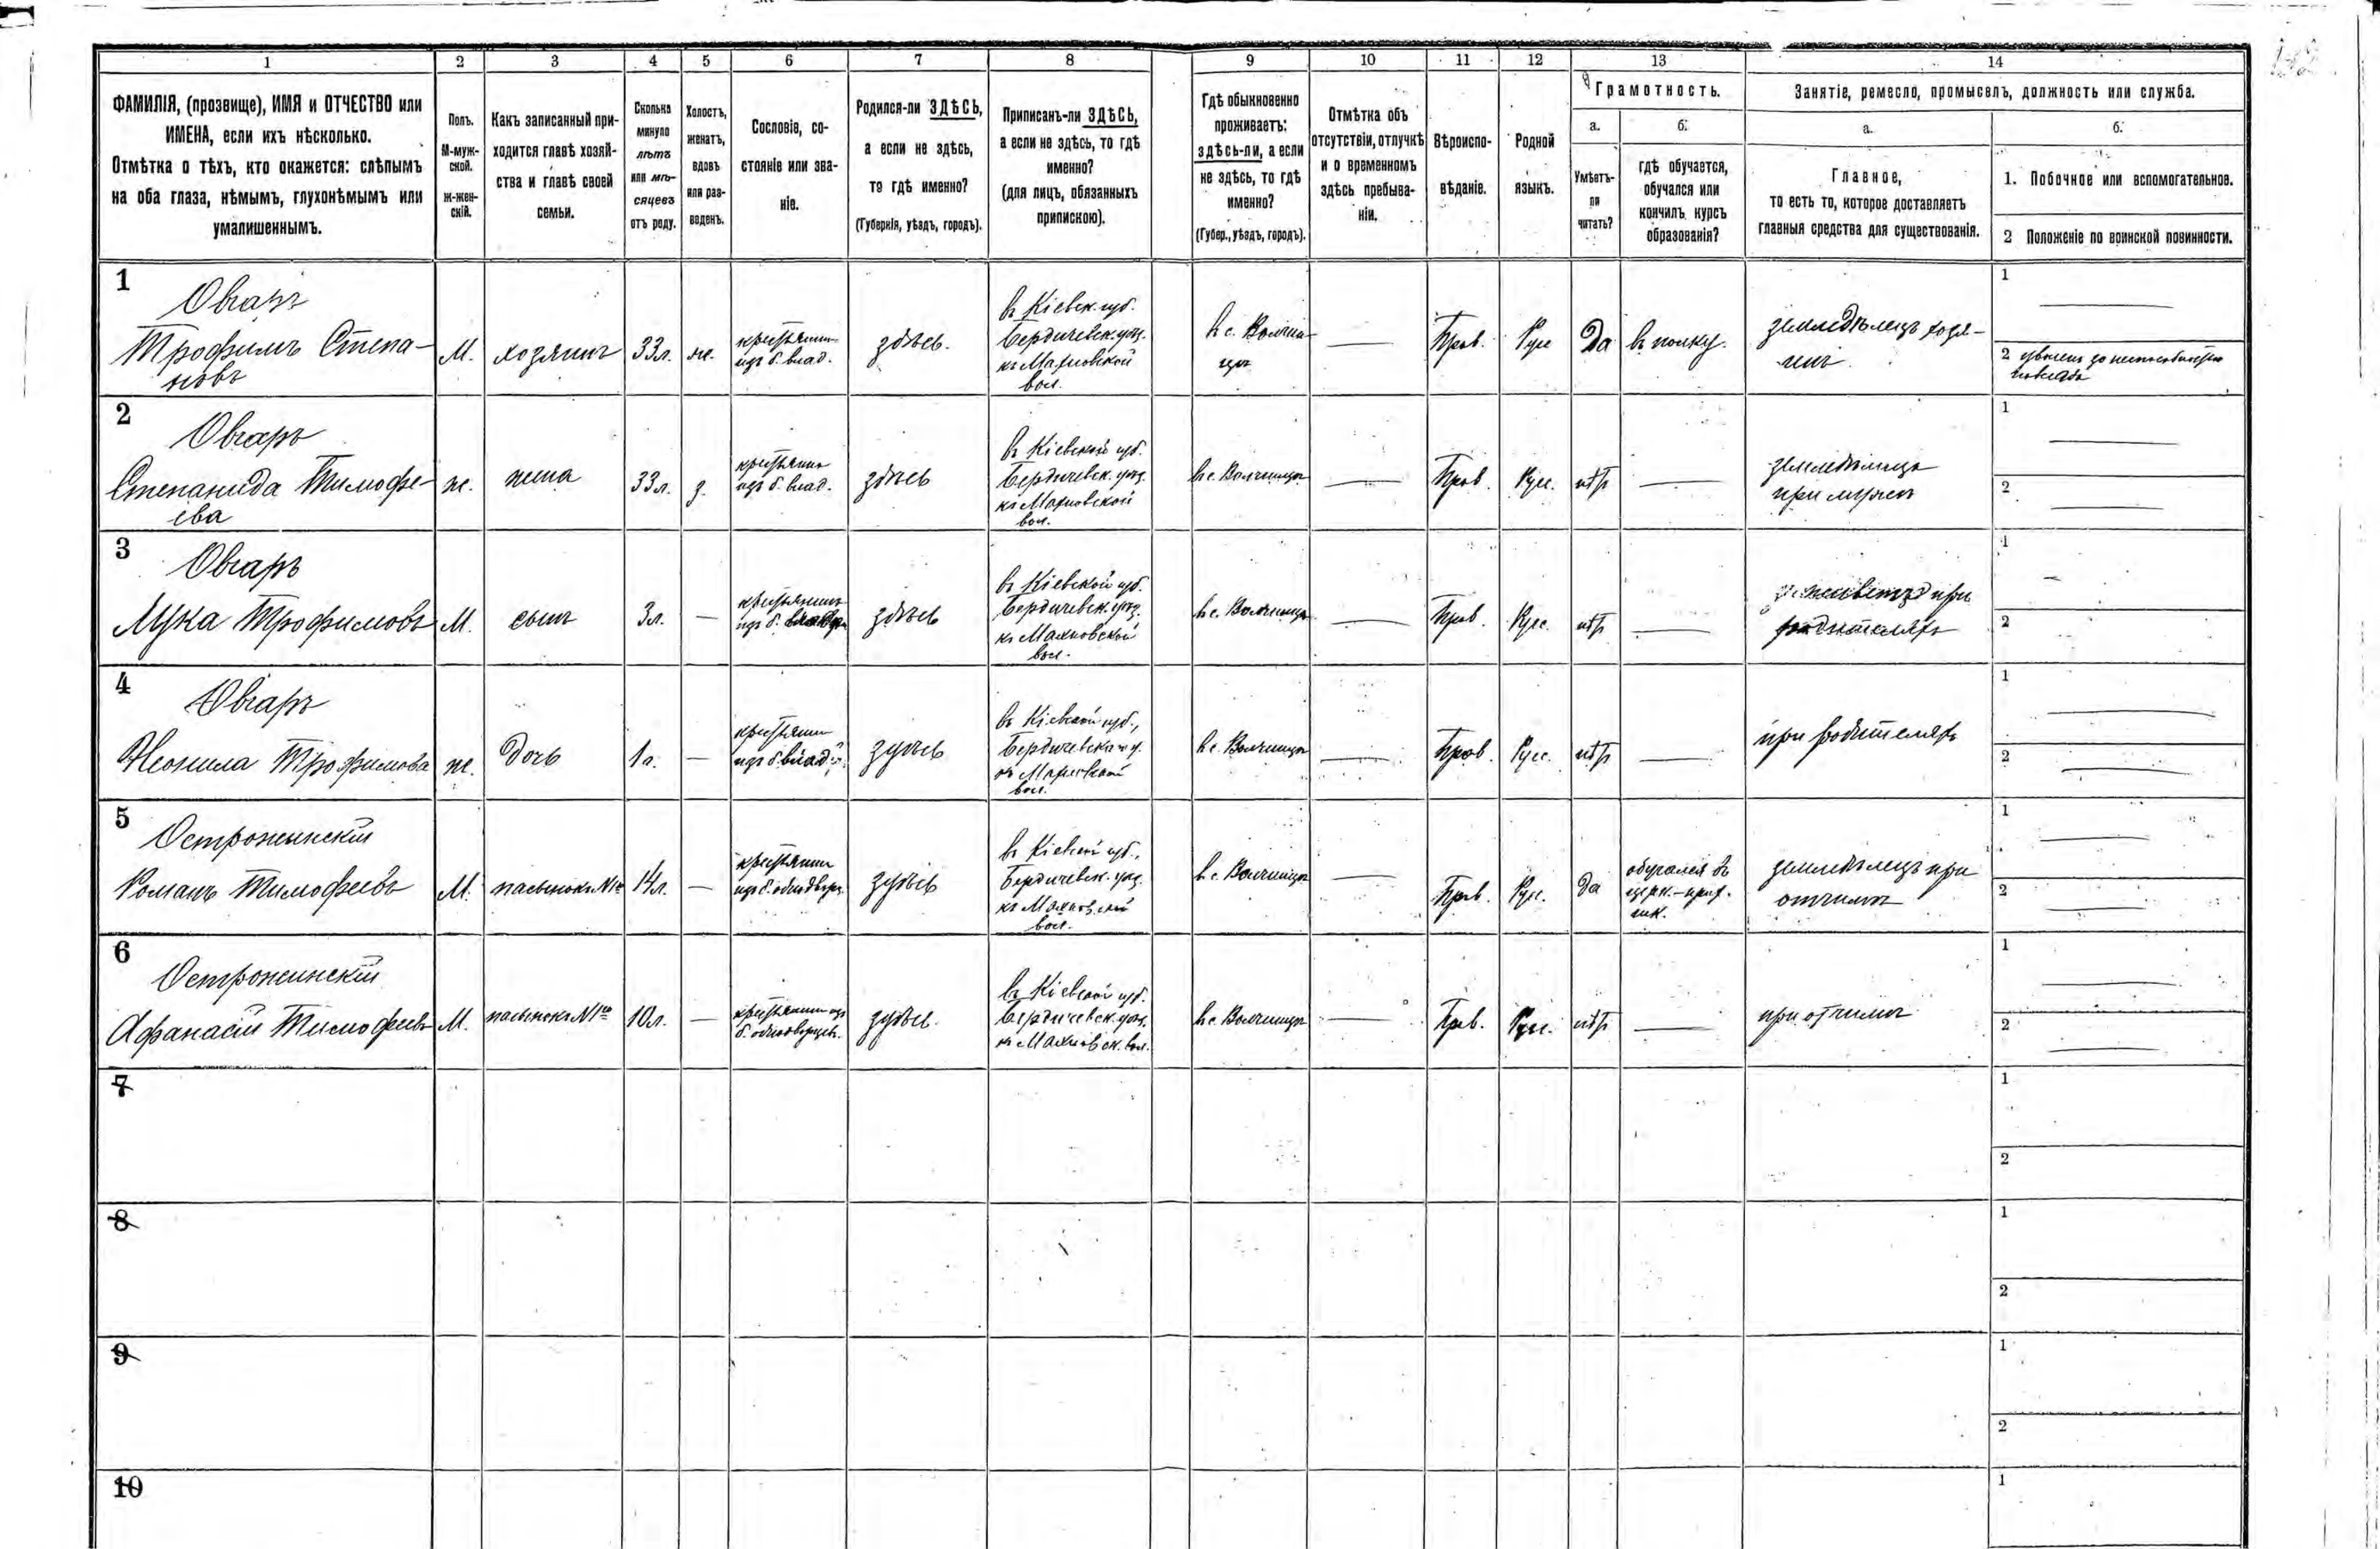 1 2 3 4 5 6 7 8 9 10 11 12 13 14
ФАМИЛІЯ, (прозвище), ИМЯ и ОТЧЕСТВО или
ИМЕНА, если ихъ нѣсколько.
Отмѣтка о тѣхъ, кто окажется: слѣпымъ
на оба глаза, нѣмымъ, глухонѣмымъ или
умалишеннымъ.
Полъ.
М-муж-
ской.
Ж-жен-
скій.
Какъ записанный при-
ходится главѣ хозяй-
ства и главѣ своей
семьи.
Сколько
минуло
лѣтъ
или мѣ-
сяцевъ
отъ роду.
Холостъ,
женатъ,
вдовъ
или раз-
веденъ.
Сословіе, со-
стояніе или зва-
ніе.
Родился-ли ЗДѢСЬ,
а если не здѣсь,
то гдѣ именно?
(Губернія, уѣздъ, городъ).
Приписанъ-ли ЗДѢСЬ,
а если не здѣсь, то гдѣ
именно?
(для лицъ, обязанныхъ
припискою).
Гдѣ обыкновенно
проживаетъ:
здѣсь-ли, а если
не здѣсь, то гдѣ
именно?
(Губер., уѣздъ, городъ).
Отмѣтка объ
отсутствіи, отлучкѣ
и о временномъ
здѣсь пребыва-
ніи.
Вѣроиспо-
вѣданіе.
Родной
языкъ.
Грамотность.
а.
Умѣетъ-
ли
читать?
б.
гдѣ обучается,
обучался или
кончилъ курсъ
образованія?
Занятіе, ремесло, промыселъ, должность или служба.
а.
Главное,
то есть то, которое доставляетъ
главныя средства для существованія.
б.
1. Побочное или вспомогательное.
2 Положеніе по воинской повинности.
1
Овчаръ
Трофимъ Степа-
новъ
М.
хозяинъ
33л.
ж.
крестьянинъ
изъ б. влад.
здѣсь.
въ Кіевск. губ.
Бердичевск. уѣзд.
къ Махновской
вол.
въ с. Волчин-
цѣ
Прав.
Рус
Да
въ полку.
земледѣлецъ хозя-
инъ
1
2
2
Овчаръ
Степанида Тимофе-
ева
ж.
жена
33л.
з.
крестьянинъ
изъ б. влад.
здѣсь
въ Кіевской губ.
Бердичевск. уѣзд.
къ Махновской
вол.
въ с. Волчинцѣ
Прав.
Рус.
нѣтъ
земледѣлица
при мужѣ
1
2
3
Овчаръ
Лука Трофимовъ
М.
сынъ
3л.
—
крестьянинъ
изъ б.
здѣсь
въ Кіевской губ.
Бердичевск. уѣзд.
къ Махновской
вол.
въ с. Волчинцѣ
Прав.
Рус.
нѣтъ
при
родителяхъ
1
2
4
Овчаръ
Неонила Трофимова
ж.
дочь
1г.
—
крестьянинъ
изъ б. влад.
здѣсь
въ Кіевской губ.,
Бердичевскаго у.
къ Махновской
вол.
въ с. Волчинцѣ
Прав.
Рус.
нѣтъ
при родителяхъ
1
2
5
Острожинскій
Романъ Тимофеевъ
М.
пасынокъ №1го
14л.
—
крестьянинъ
изъ б. однодворц.
здѣсь
въ Кіевской губ.,
Бердичевск. уѣзд.
къ Махновской
вол.
въ с. Волчинцѣ
Прав.
Рус.
да
обучался въ
церк.-прих.
шк.
земледѣлецъ при
отчимѣ
1
2
6
Острожинскій
Афанасій Тимофеевъ
М.
пасынокъ №1го
10л.
—
крестьянинъ изъ
б. однодворцев.
здѣсь.
въ Кіевской губ.
Бердичевск. уѣзд.
къ Махновск. вол.
въ с. Волчинцѣ
Прав.
Рус.
нѣтъ
при отчимѣ
1
2
7
1
2
8
1
2
9
1
2
10
1